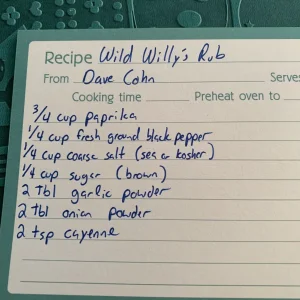 Recipe Wild Willy's Rub
From Dave Cohn Serves
Cooking time Preheat oven to
3/4 cup Paprika
1/4 cup fresh ground black pepper
1/4 cup coarse salt (sea or kosher)
1/4 cup sugar (brown)
2 tbl garlic powder
2 tbl onion powder
2 tsp cayenne